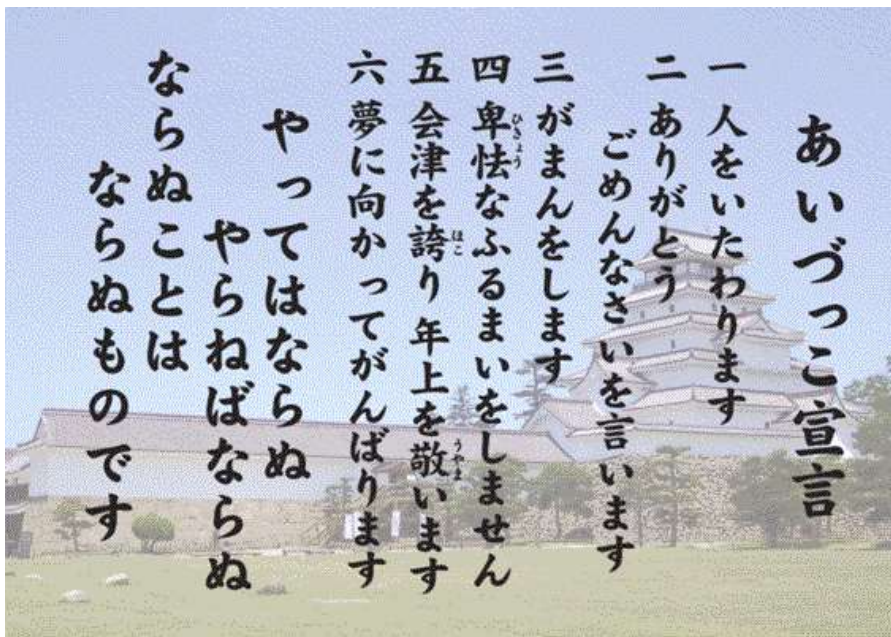 あいづっこ宣言
一 人をいたわります
二 ありがとう
ごめんなさいを言います
三 がまんをします
四 卑怯なふるまいをしません
ひきょう
五 会津を誇り 年上を敬います
ほこ
うやま
六 夢に向かってがんばります
やってはならぬ
やらねばならぬ
ならぬことは
ならぬものです